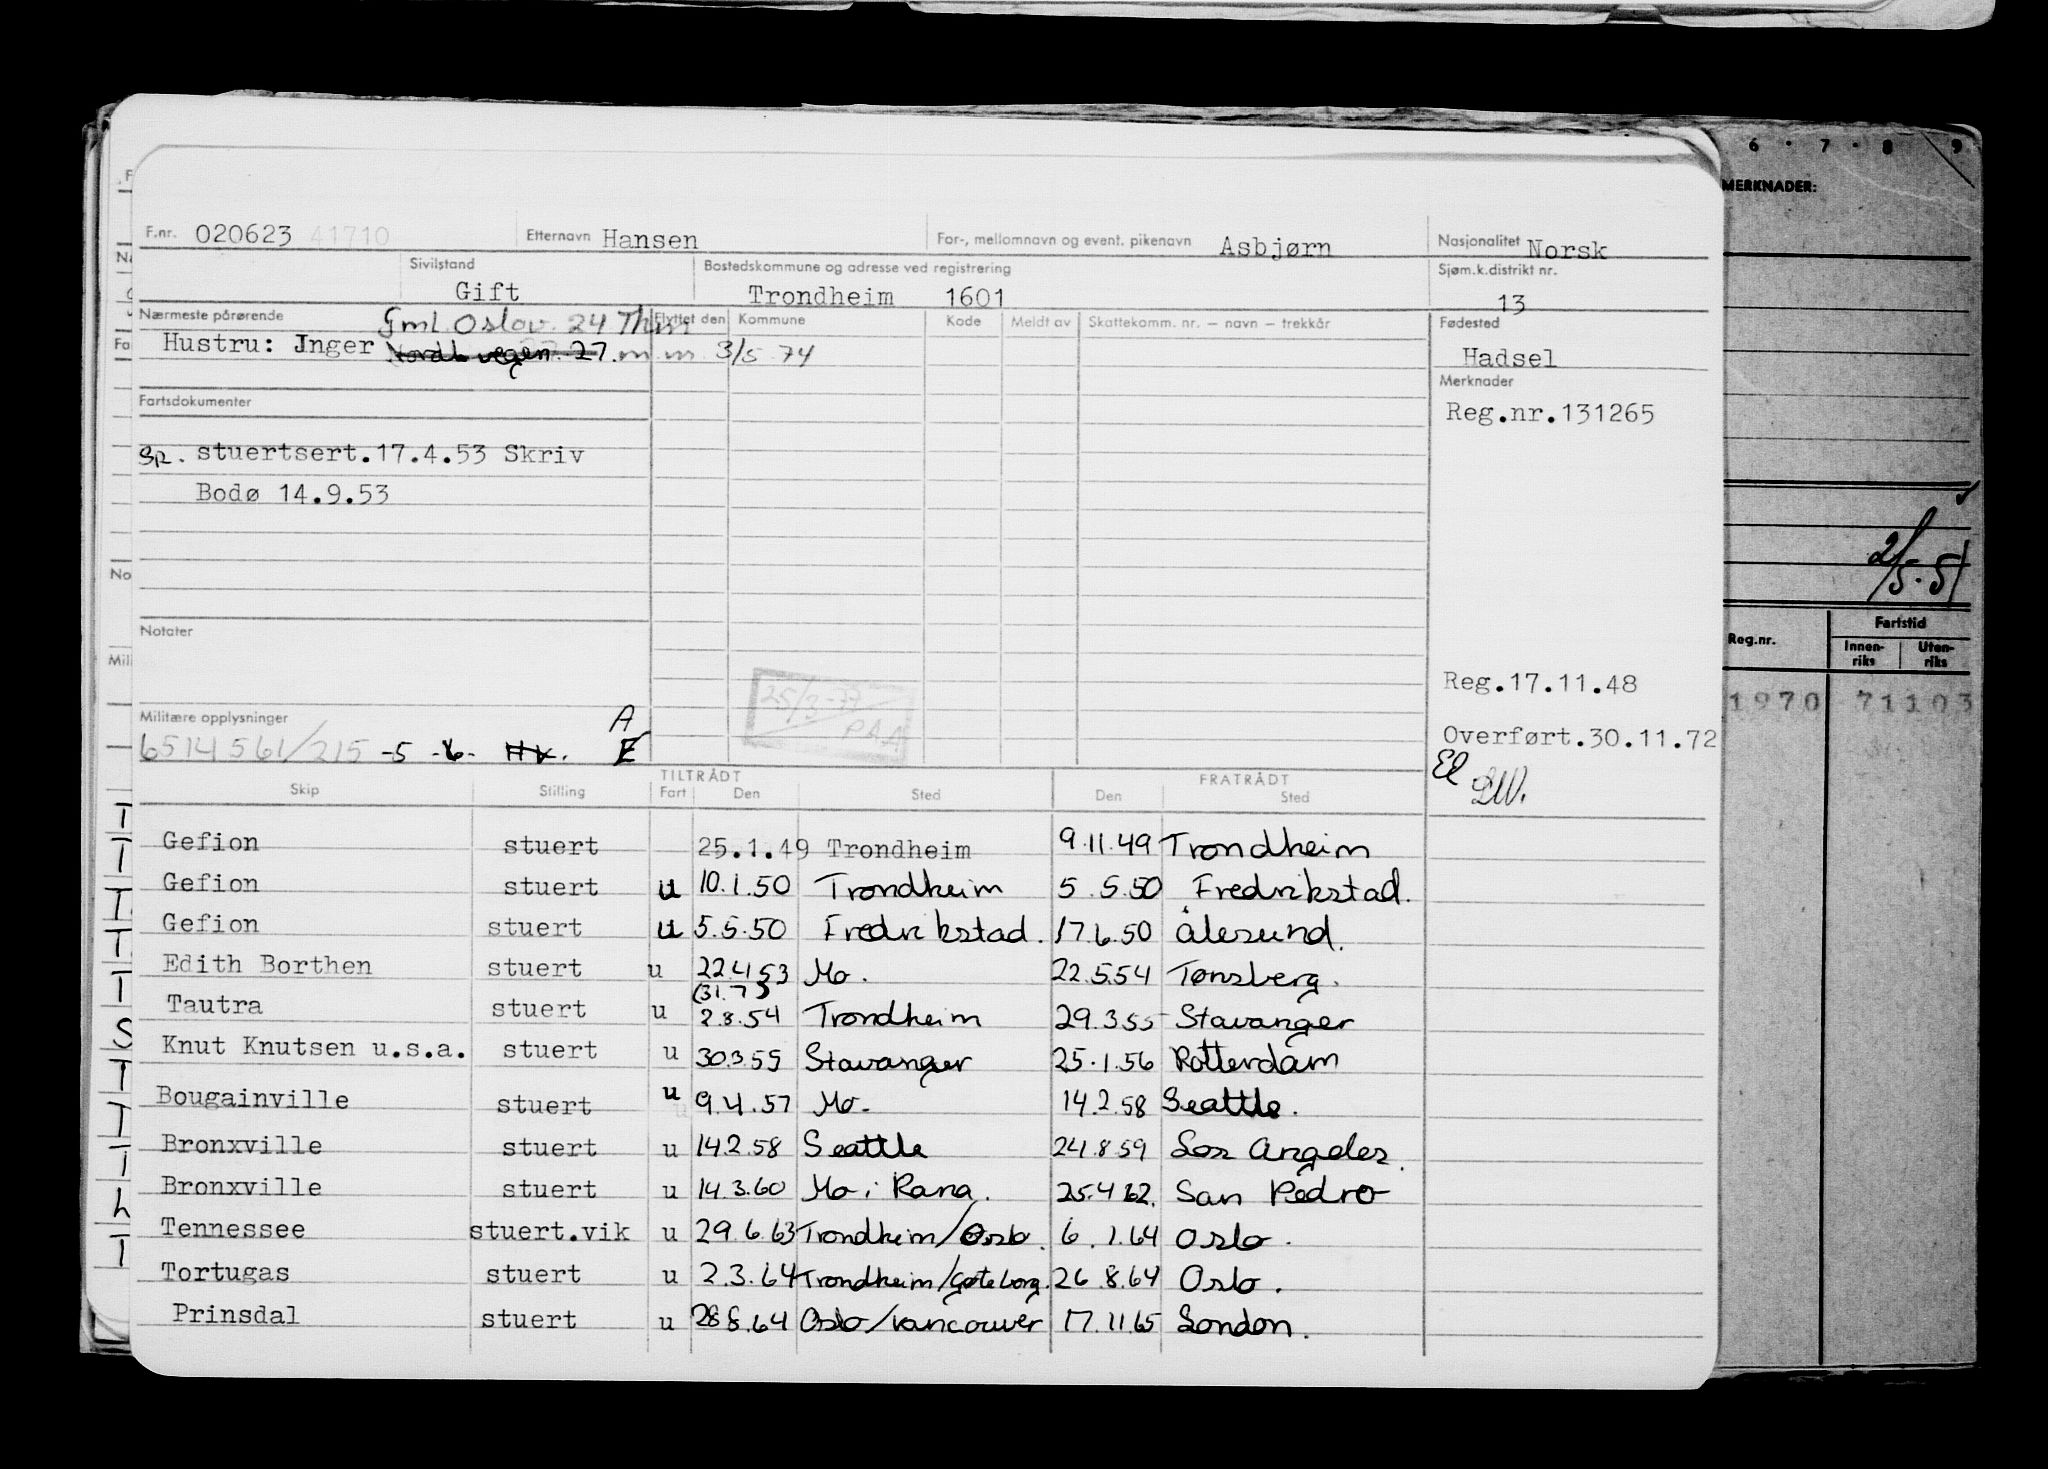 6 · 7 · 8 9
MERKNADER:
F.nr. 020623 41710 Etternavn Hansen For-, mellomnavn og event. pikenavn Asbjørn Nasjonalitet Norsk
Sivilstand Gift Bostedskommune og adresse ved registrering Trondheim 1601 Sjøm.k.distrikt nr. 13
Nærmeste pårørende Gml. Oslov. 24 Flyttet den Kommune Kode Meldt av Skattekomm. nr. – navn – trekkår Fødested
Hustru: Inger vegen 27. 3/5 74 Hadsel
Merknader
Fartsdokumenter Reg.nr.131265
stuertsert.17.4.53 Skriv
Bodø 14.9.53
2/5-51
Notater
Reg.nr. Fartstid
Innen-riks Uten-riks
25/3-77 Reg.17.11.48
PAA
1970 71103
Militære opplysninger A
6514561/215 -5 -6- HV. E Overført.30.11.72
El
TILTRÅDT FRATRÅDT
Skip Stilling Fart Den Sted Den Sted
Gefion stuert 25.1.49 Trondheim 9.11.49 Trondheim
Gefion stuert u 10.1.50 Trondheim 5.5.50 Fredrikstad.
Gefion stuert u 5.5.50 Fredrikstad. 17.6.50 Ålesund.
Edith Borthen stuert u 22.4.53 Mo. 22.5.54 Tønsberg.
(31.7)
Tautra stuert u 2.8.54 Trondheim 29.3.55 Stavanger
Knut Knutsen u.s.a. stuert u 30.3.55 Stavanger 25.1.56 Rotterdam
Bougainville stuert u 9.4.57 Mo. 14.2.58 Seattle.
Bronxville stuert u 14.2.58 Seattle 24.8.59 Los Angeles.
Bronxville stuert u 14.3.60 Mo i Rana. 25.4.62. San Pedro
Tennessee stuert.vik u 29.6.63 Trondheim/Oslo. 6.1.64 Oslo.
Tortugas stuert u 2.3.64 Trondheim/Gøteborg. 26.8.64 Oslo.
Prinsdal stuert u 28.8.64 Oslo/Vancouver 17.11.65 London.